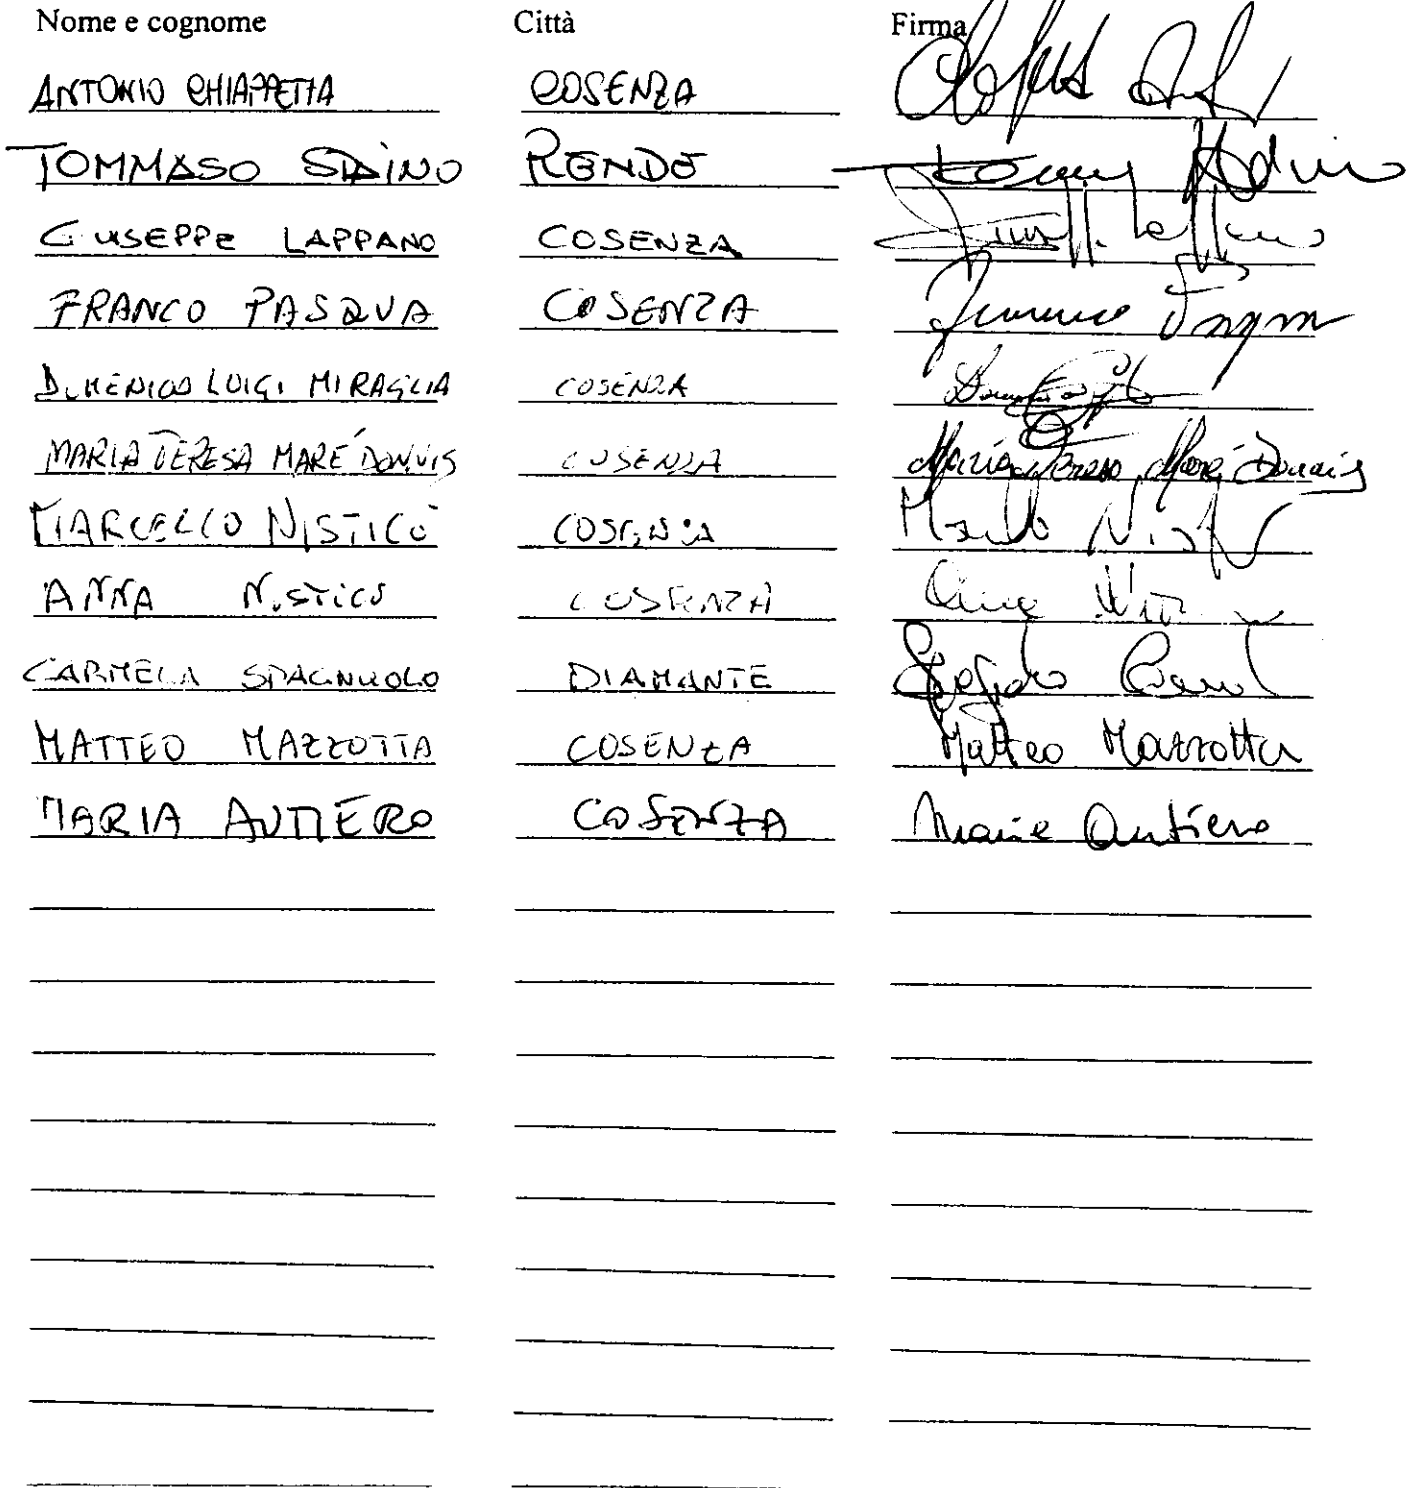 Nome e cognome Città Firma
ANTONIO CHIAPPETTA COSENZA
TOMMASO SDAINO RENDE
GIUSEPPE LAPPANO COSENZA
FRANCO PASQUA COSENZA
DOMENICO LUIGI MIRAGLIA COSENZA
MARIA TERESA MARÉ DONVIS COSENZA Maria Teresa Maré Donvis
MARCELLO NISTICÒ COSENZA
ANNA NISTICÒ COSENZA
CARMELA SPAGNUOLO DIAMANTE
MATTEO MAZZOTTA COSENZA Matteo Mazzotta
MARIA AUTIERO COSENZA Maria Autiero